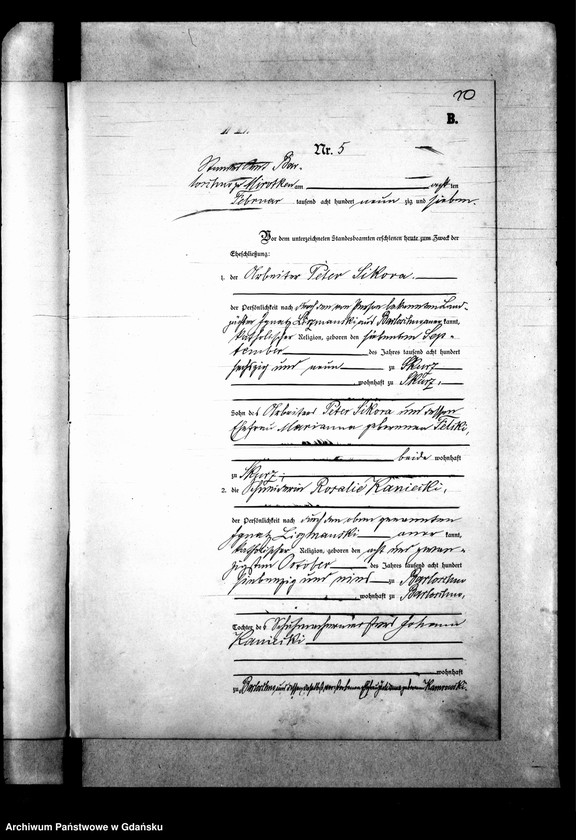 10
B.
Nr. 5
Standesamt Bar-
am acht ten
Februar tausend acht hundert neun zig und sieben.
Vor dem unterzeichneten Standesbeamten erschienen heute zum Zweck der
Eheschließung:
1. der Arbeiter Peter Sikora.
der Persönlichkeit nach durch den von Person bekannten Land-
aus aner kannt,
katholischer Religion, geboren den siebenten Sep-
tember des Jahres tausend acht hundert
sechszig und neun zu Skurz
wohnhaft zu Skurz,
Sohn des Arbeiters Peter Sikora und dessen
Ehefrau Marianna geborenen
beide wohnhaft
zu Skurz;
2. die Rosalie Kaniecki,
der Persönlichkeit nach durch den oben genannten
Ignatz aner kannt,
katholischer Religion, geboren den acht und zwan-
zigsten October des Jahres tausend acht hundert
siebenzig und eins zu
wohnhaft zu
Tochter des Schuhmachermeisters Johann
Kaniecki
wohnhaft
zu
Archiwum Państwowe w Gdańsku